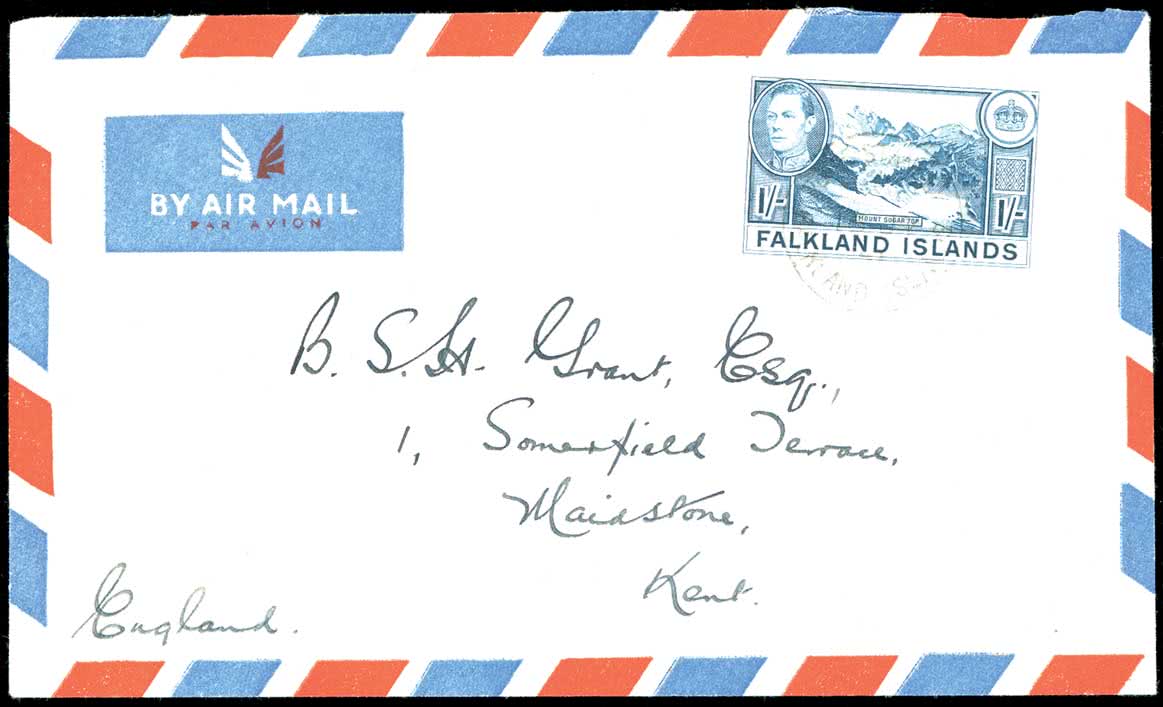 BY AIR MAIL
PAR AVION
1/-
1/-
MOUNT SUGAR TOP
FALKLAND ISLANDS
B. S. H. Grant, Esq.,
1, Somerfield Terrace,
Maidstone,
Kent.
England.